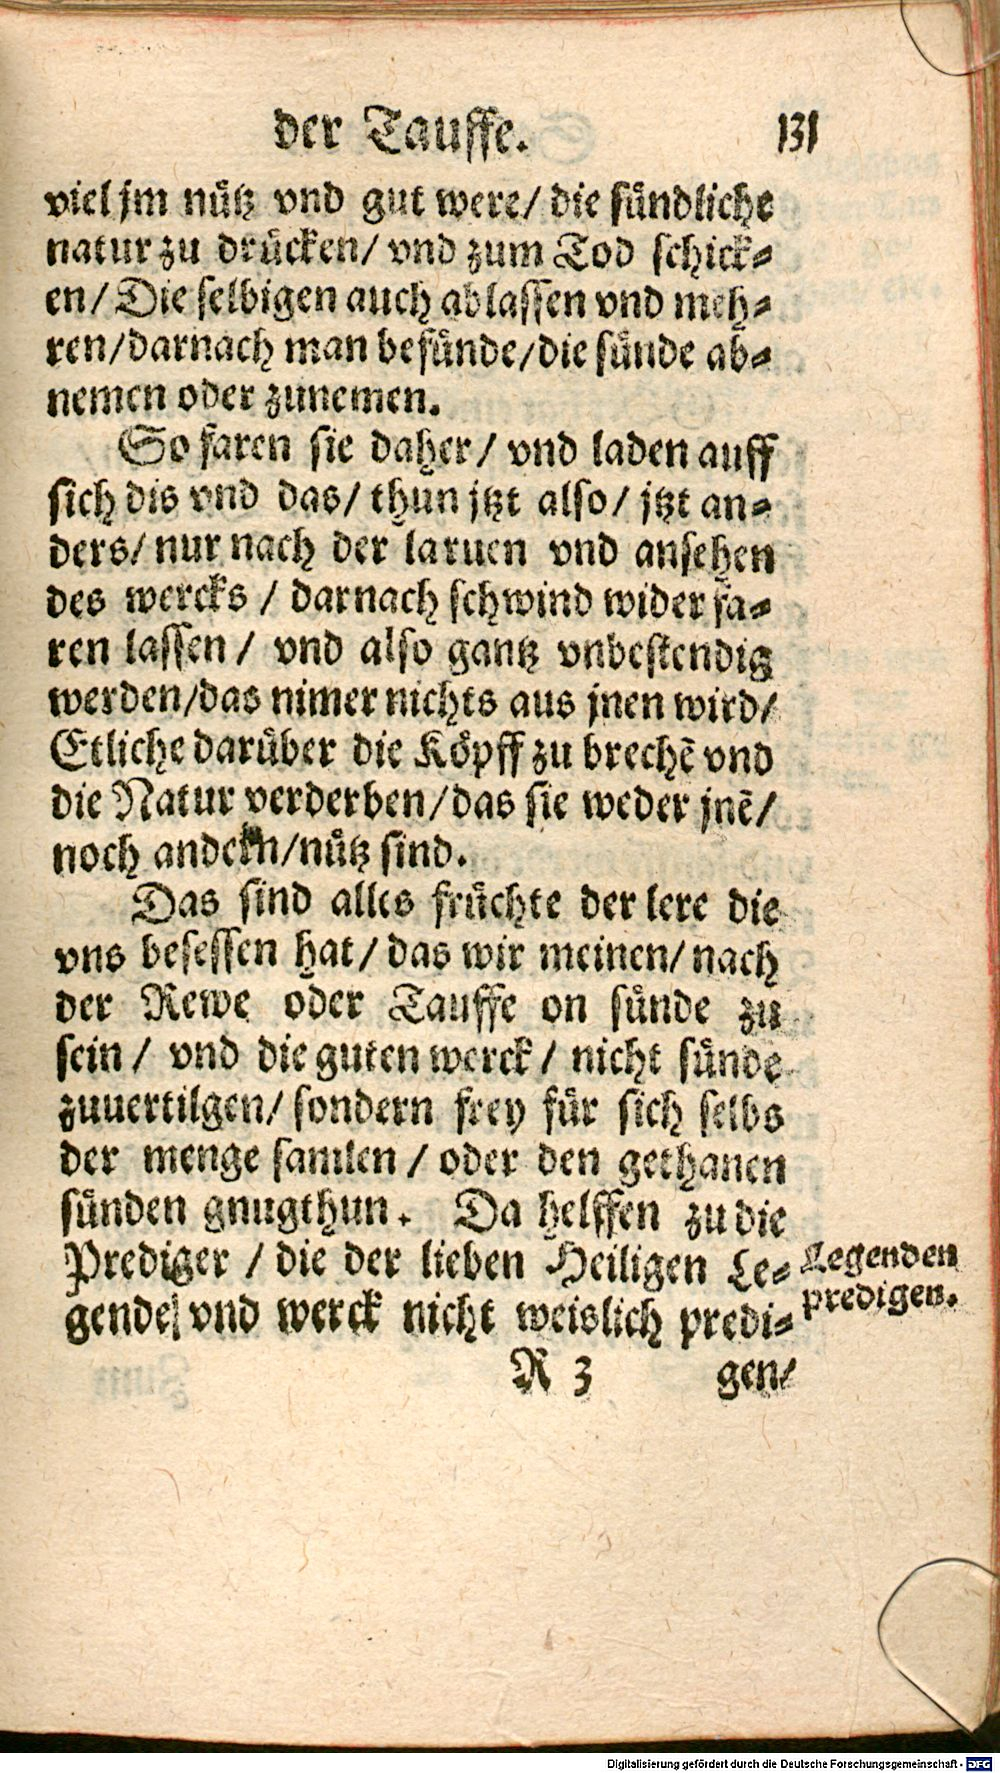 der Tauffe. 131
viel jm nütz vnd gut were/ die sündliche
natur zu drücken/ vnd zum Tod schick⸗
en/ Die selbigen auch ablassen vnd meh⸗
ren/darnach man befünde/die sünde ab⸗
nemen oder zunemen.
So faren sie daher/ vnd laden auff
sich dis vnd das/ thun jtzt also/ jtzt an⸗
ders/ nur nach der laruen vnd ansehen
des wercks / darnach schwind wider fa⸗
ren lassen/ vnd also gantz vnbestendig
werden/das nimer nichts aus jnen wird/
Etliche darüber die Köpff zu brechē vnd
die Natur verderben/das sie weder jnē/
noch andern/nütz sind.
Das sind alles früchte der lere die
vns besessen hat/ das wir meinen/ nach
der Rewe oder Tauffe on sünde zu
sein/ vnd die guten werck/ nicht sünde
zuuertilgen/ sondern frey für sich selbs
der menge samlen / oder den gethanen
sünden gnugthun. Da helffen zu die
Prediger / die der lieben Heiligen Le⸗
gende vnd werck nicht weislich predi⸗
Legenden
predigen.
R 3 gen/
Digitalisierung gefördert durch die Deutsche Forschungsgemeinschaft - DFG